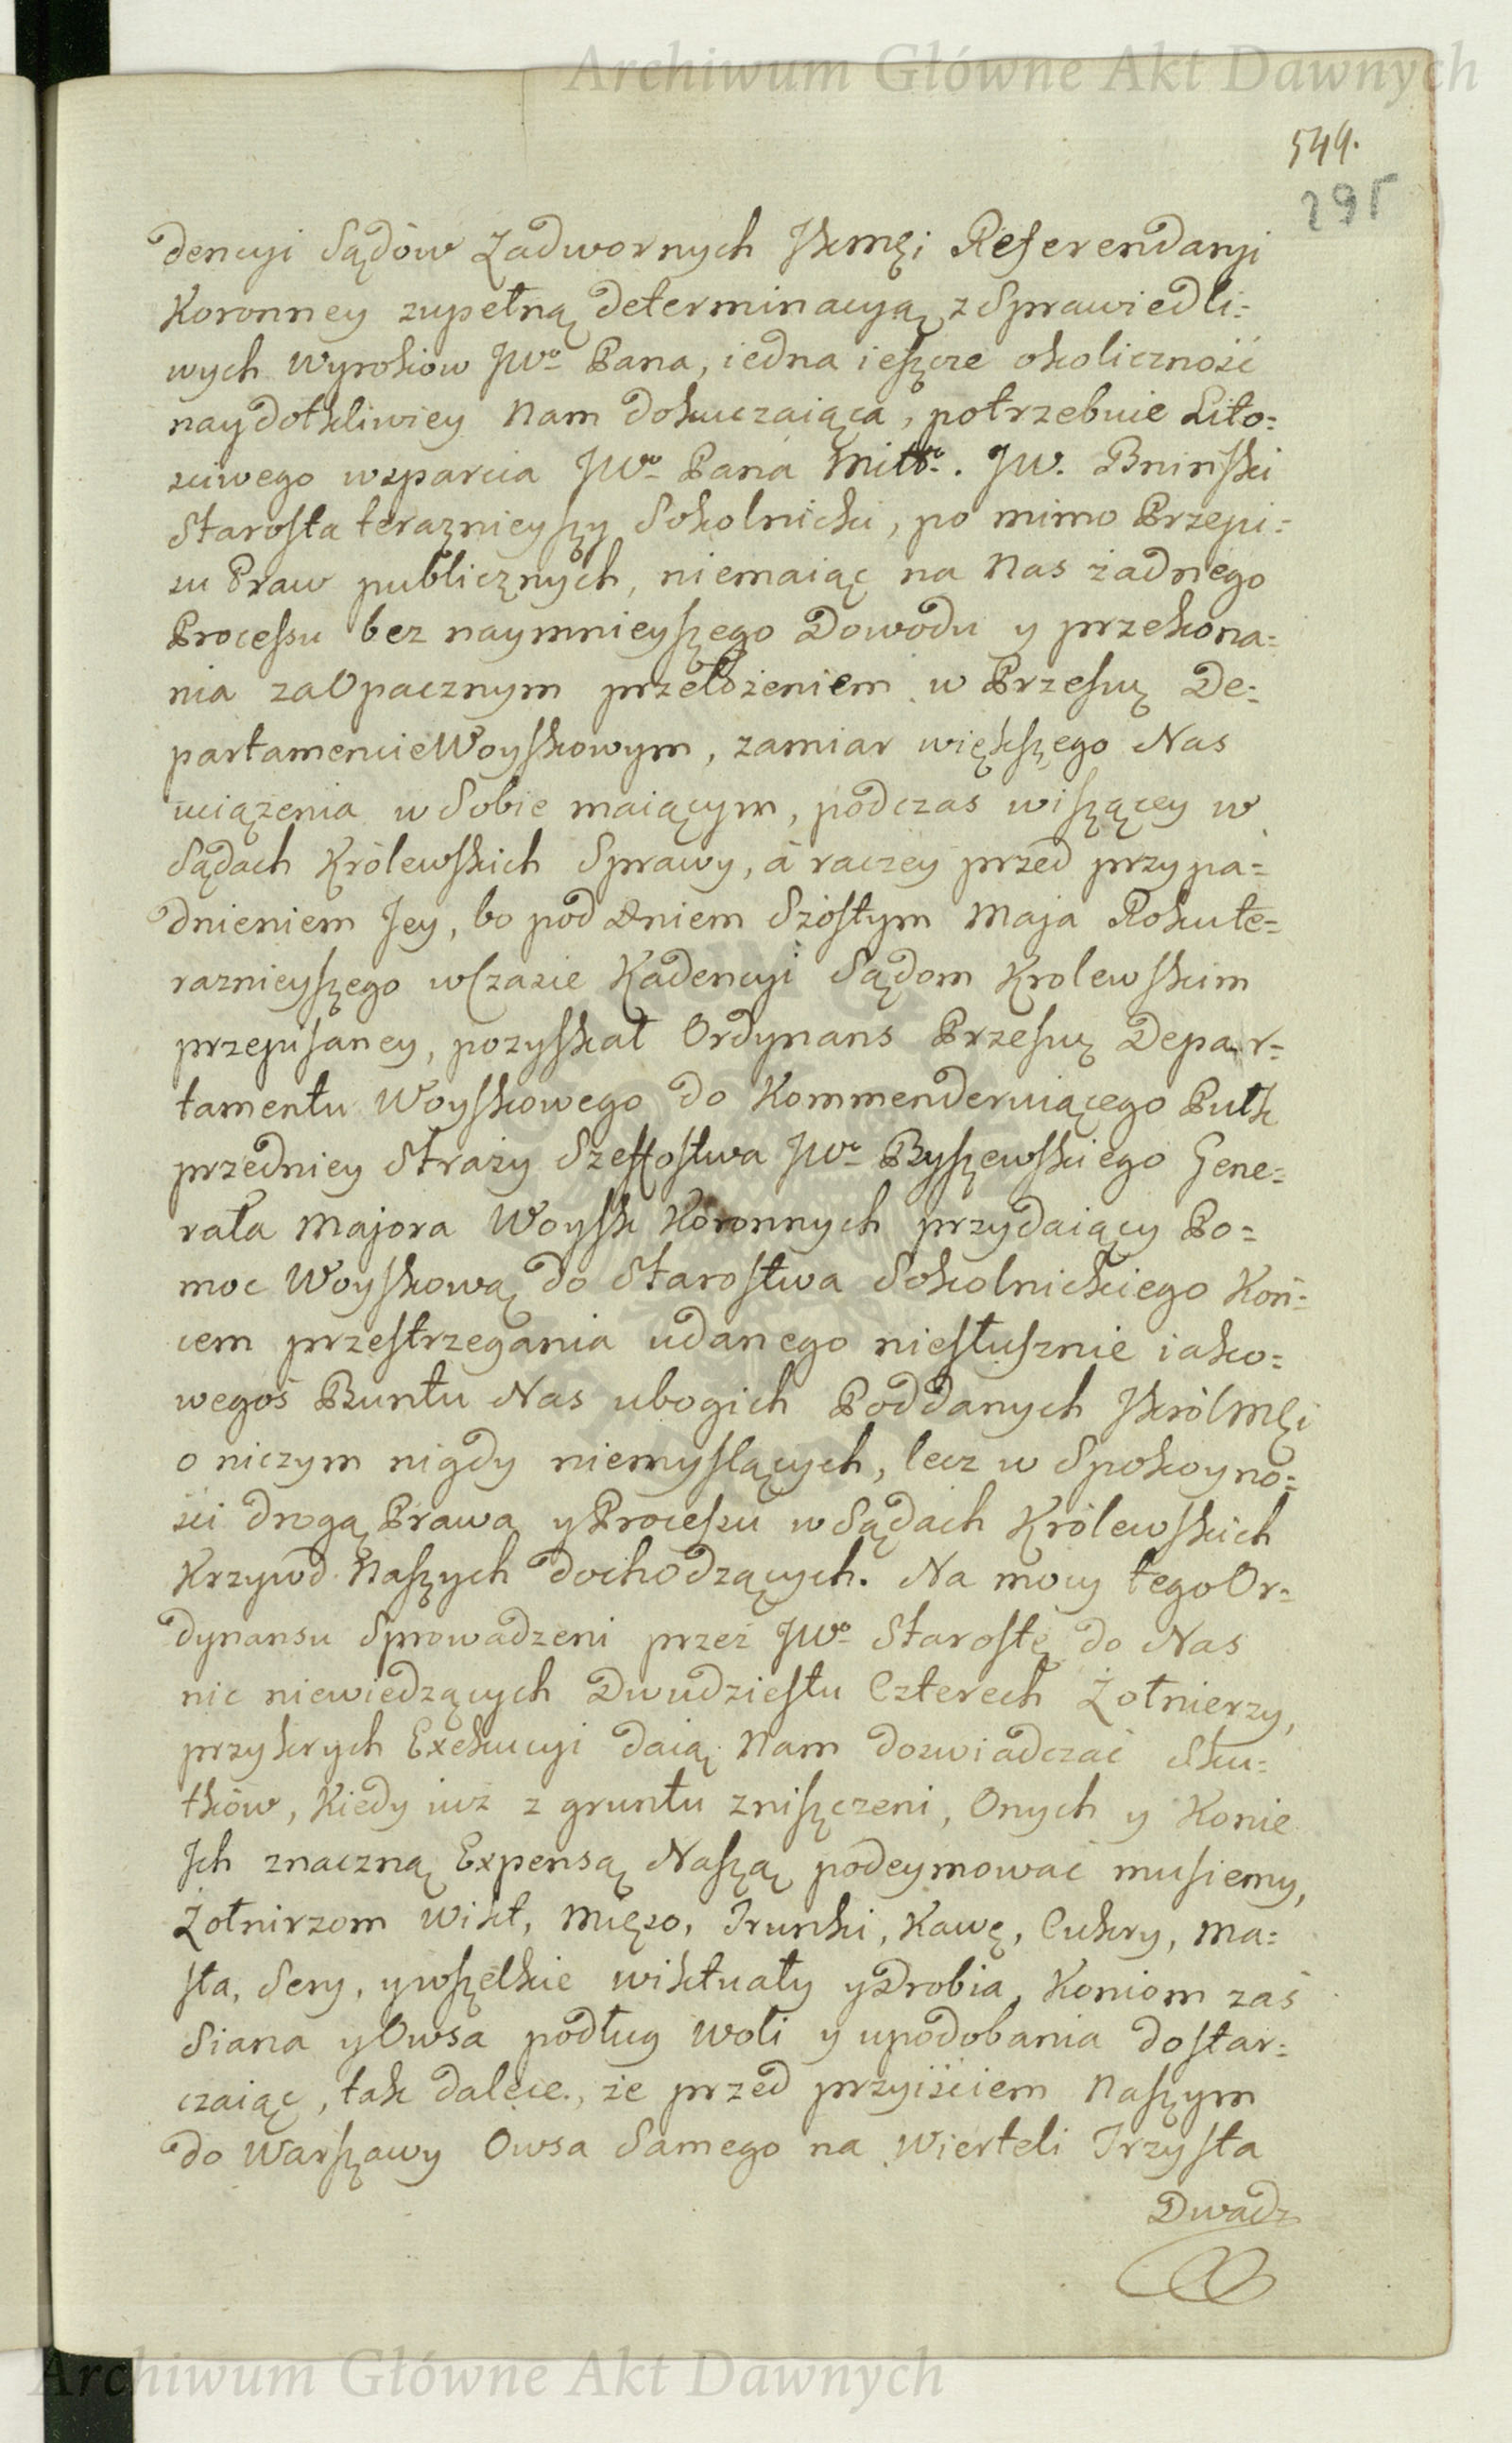 Archiwum Główne Akt Dawnych
544.
295
dencyi Sądów Zadwornych JKmęi Referendaryi
Koronney zupełną determinacyą z Sprawiedli=
wych Wyrokow JWo Pana, iedna ieszcze okoliczność
naydotkliwiey Nam dokuczaiąca, potrzebuie Lito=
sciwego wsparcia JWo Pana Miłłº. JW. Bniński
Starosta teraznieyszy Sokolnicki, po mimo Przepi=
su Praw publicznych, niemaiąc na Nas żadnego
Processu bez naymnieyszego Dowodu y przekona=
nia zaOpacznym przełożeniem w Przesw: De=
partamencieWoyskowym, zamiar większego Nas
uciążenia w Sobie maiącym, podczas wiszącey w
Sądach Królewskich Sprawy, á raczey przed przypa=
dnieniem Jey, bo pod dniem Szóstym Maja Roku te=
raznieyszego wCzasie Kadencyi Sądom Krolewskim
przepisaney, pozyskał Ordynans Przesw: Depar=
tamentu Woyskowego do Kommenderuiącego Pułk
przedniey Straży Szeffostwa JWo Byszewskiego Gene=
rała Majora Woysk Koronnych przydaiący Po=
moc Woyskową do Starostwa Sokolnickiego Koń=
cem przestrzegania udanego niesłusznie iako=
wegoś Buntu Nas ubogich Poddanych JKrólMęi
o niczym nigdy niemyslących, lecz w Spokoyno=
ści drogą Prawa y Processu w Sądach Królewskich
Krzywd Naszych dochodzących. Na mocy tego Or=
dynansu Sprowadzeni przez JWo Starostę do Nas
nic niewiedzących Dwudziestu Czterech Żołnierzy,
przykrych Exekucyi daią Nam doswiadczać Sku=
tków, Kiedy iuż z gruntu zniszczeni, Onych y Konie
Jch znaczną Expensą Naszą podeymować musiemy,
Żołnirzom Wikt, Mięso, Trunki, Kawę, Cukry, Ma=
sła, Sery, y wszelkie wiktuały y Drobia, Koniom zaś
Siana y Owsa podług woli y upodobania dostar=
czaiąc, tak dalece, że przed przyiściem Naszym
do Warszawy Owsa Samego na Wierteli Trzysta
Dwadz
Archiwum Główne Akt Dawnych